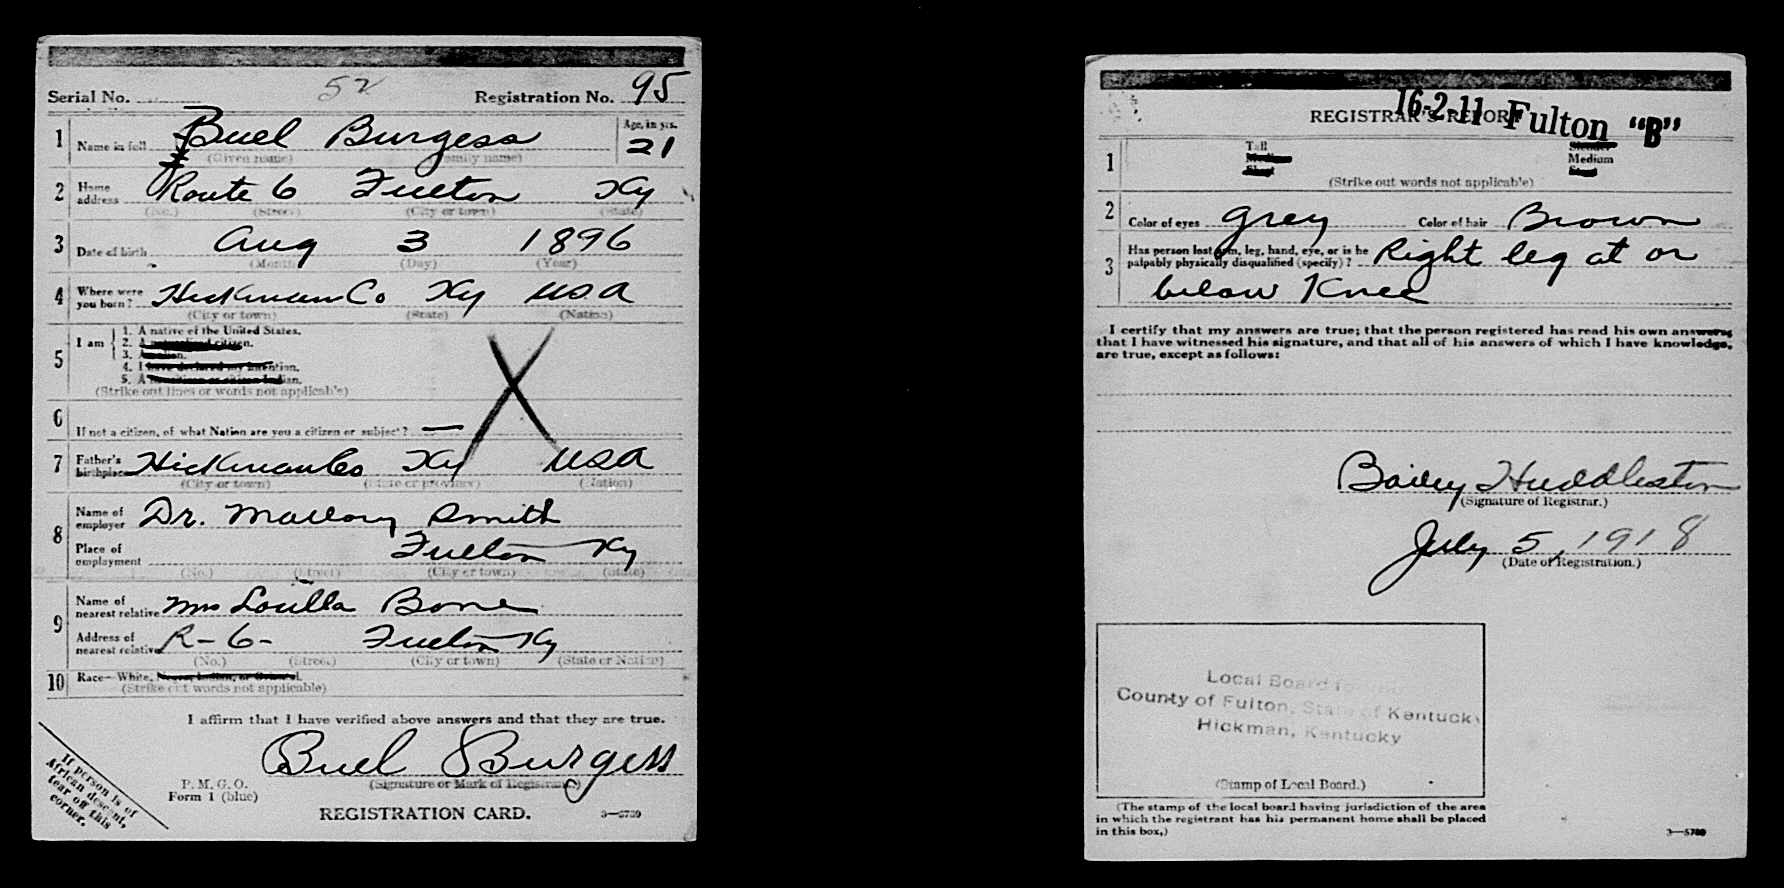 Serial No. 52 Registration No. 95
1 Name in full Buel Burgess Age, in yrs. 21
(Given name) (Family name)
2 Home address Route 6 Fulton Ky
(No.) (Street) (City or town) (State)
3 Date of birth Aug 3 1896
(Month) (Day) (Year)
4 Where were you born? Hickman Co Ky USA
(City or town) (State) (Nation)
5 I am 1. A native of the United States.
2. A naturalized citizen.
3. An alien.
4. I have declared my intention.
5. A noncitizen or citizen Indian.
(Strike out lines or words not applicable)
6 If not a citizen, of what Nation are you a citizen or subject? —
7 Father's birthplace Hickman Co Ky USA
(City or town) (State or province) (Nation)
8 Name of employer Dr. Mallory Smith
Place of employment Fulton Ky
(No.) (Street) (City or town) (State)
9 Name of nearest relative Mrs Louilla Bone
Address of nearest relative R-6- Fulton Ky
(No.) (Street) (City or town) (State or Nation)
10 Race—White, Negro, Indian, or Oriental.
(Strike out words not applicable)
I affirm that I have verified above answers and that they are true.
Buel Burgess
P. M. G. O.
Form 1 (blue)
(Signature or Mark of Registrant.)
REGISTRATION CARD. 3—5739
If person is of
African descent,
tear off this
corner.
REGISTRAR'S REPORT
16-2-11 Fulton "B"
1 Tall Slender
Medium Medium
Short Stout
(Strike out words not applicable)
2 Color of eyes Grey Color of hair Brown
3 Has person lost arm, leg, hand, eye, or is he
palpably physically disqualified (specify)? Right leg at or
below Knee
I certify that my answers are true; that the person registered has read his own answers;
that I have witnessed his signature, and that all of his answers of which I have knowledge,
are true, except as follows:
Bailey Huddleston
(Signature of Registrar.)
July 5, 1918
(Date of Registration.)
Local Board for
County of Fulton, State of Kentucky
Hickman, Kentucky
(Stamp of Local Board.)
(The stamp of the local board having jurisdiction of the area
in which the registrant has his permanent home shall be placed
in this box.)
3—5739